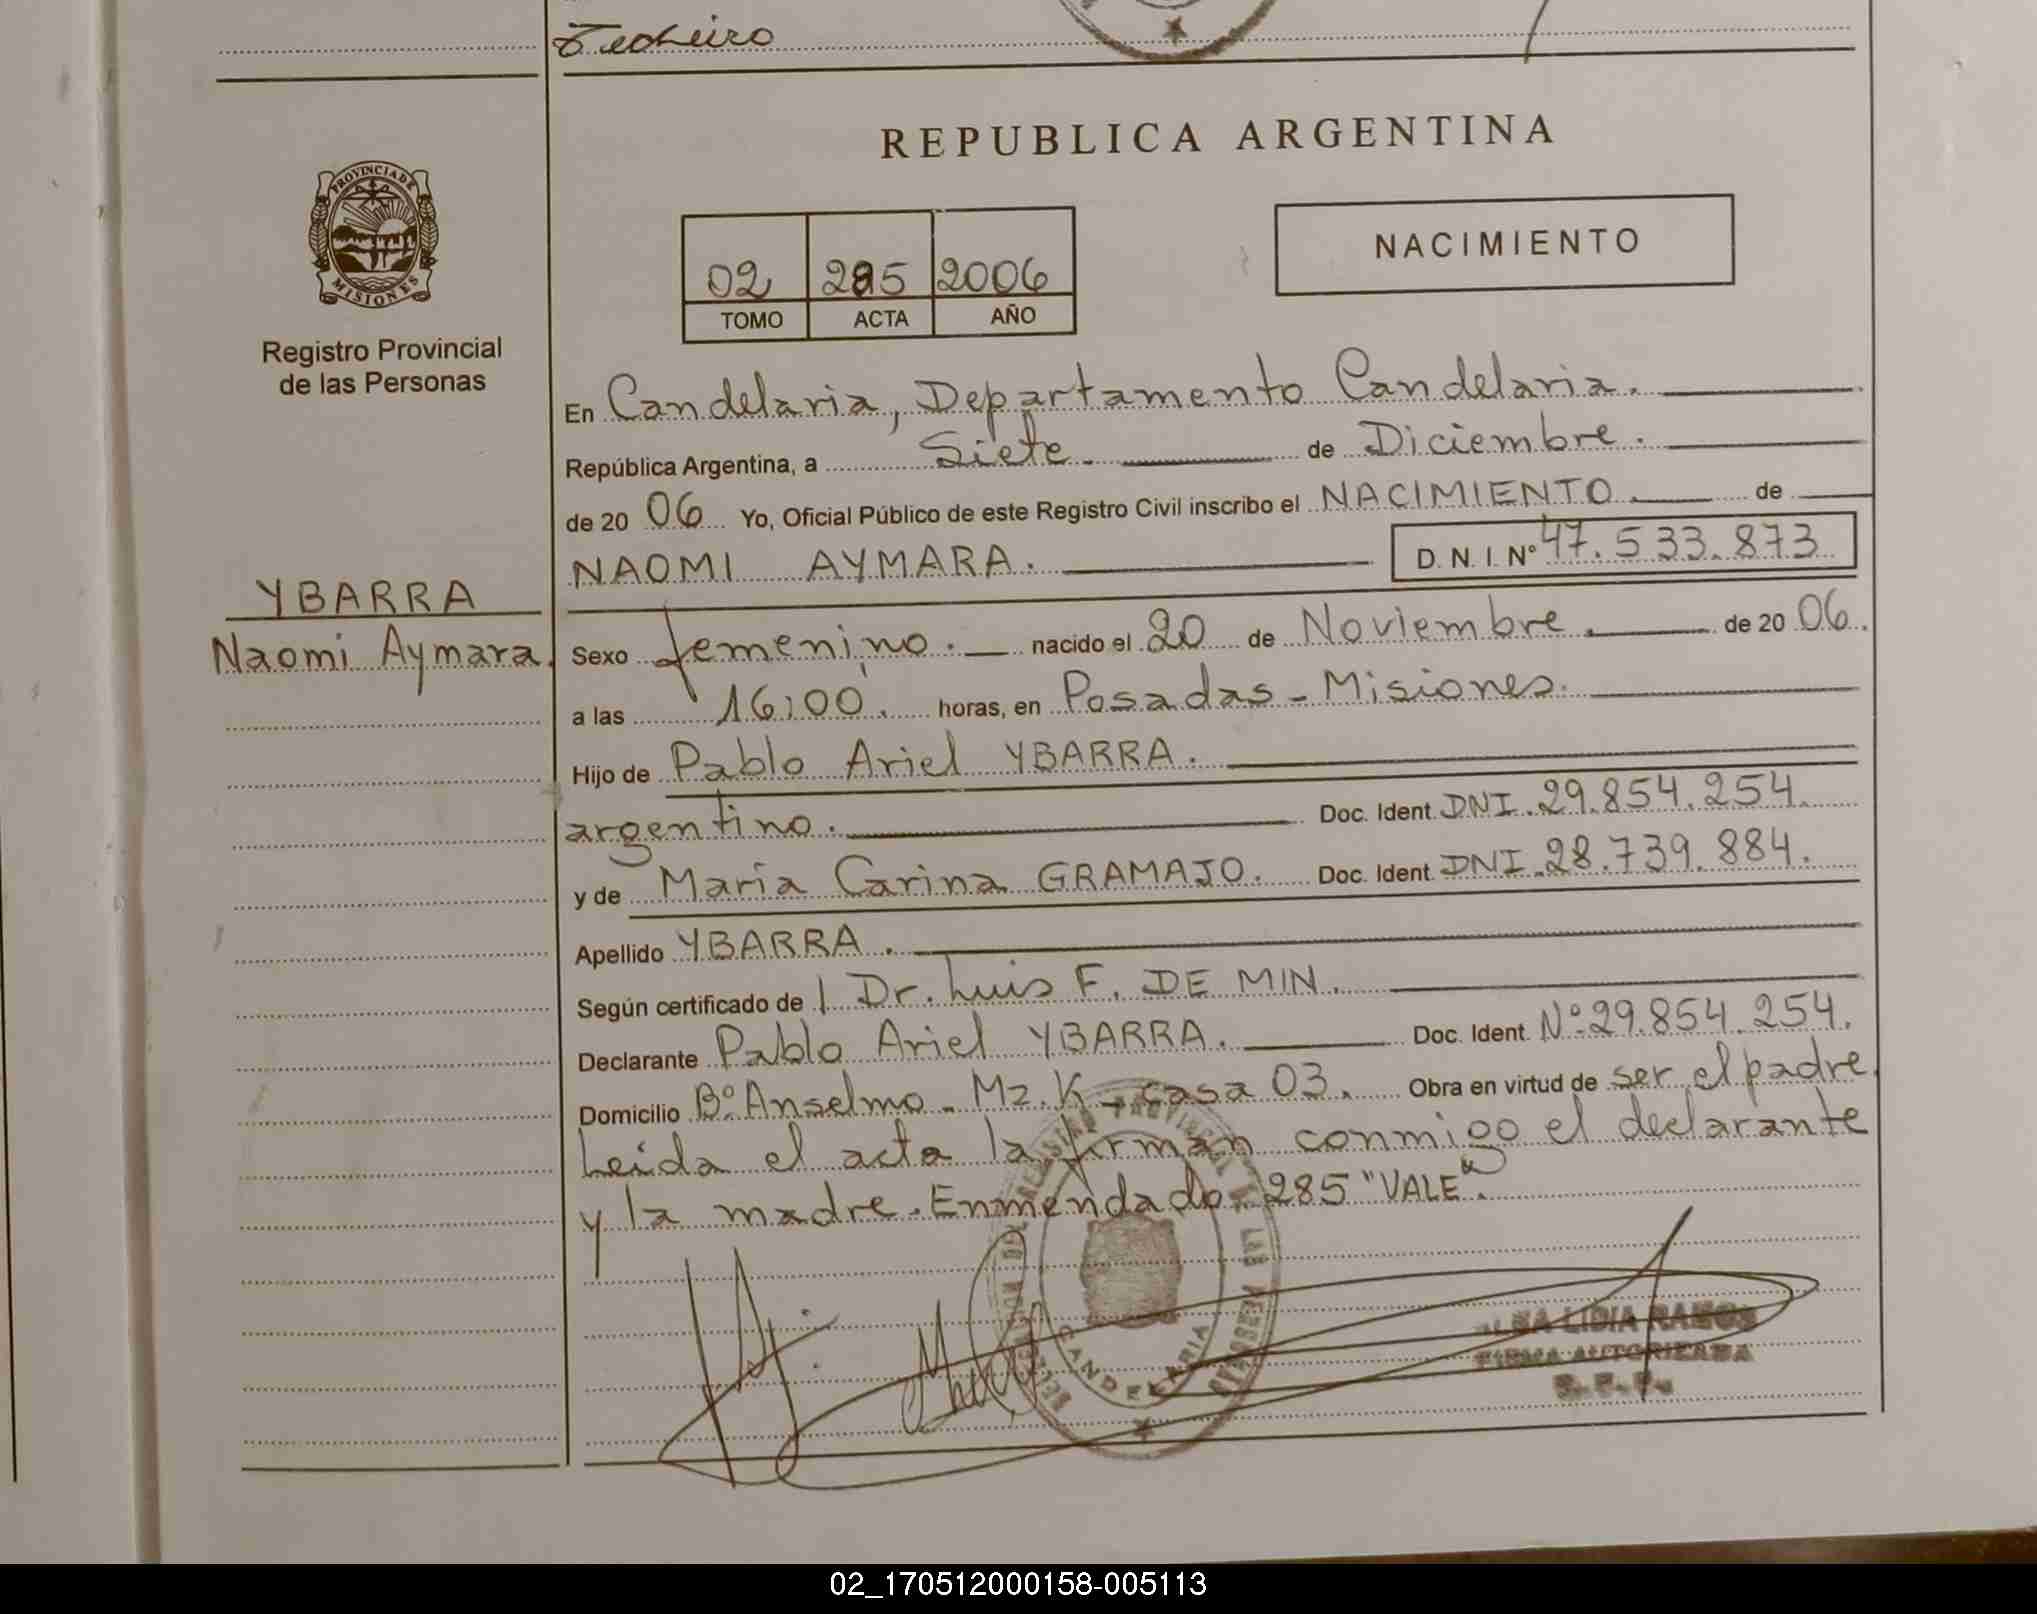 Techeiro
REPUBLICA ARGENTINA
PROVINCIA DE
MISIONES
Registro Provincial
de las Personas
NACIMIENTO
02 285 2006
TOMO ACTA AÑO
En Candelaria, Departamento Candelaria.
República Argentina, a Siete. de Diciembre.
de 20 06 Yo, Oficial Público de este Registro Civil inscribo el NACIMIENTO. de
NAOMI AYMARA. D. N. I. N° 47.533.873
YBARRA
Naomi Aymara.
Sexo femenino. nacido el 20 de Noviembre. de 20 06.
a las 16:00. horas, en Posadas - Misiones.
Hijo de Pablo Ariel YBARRA.
argentino. Doc. Ident. DNI. 29.854.254.
y de Maria Carina GRAMAJO. Doc. Ident. DNI. 28.739.884.
Apellido YBARRA.
Según certificado de Dr. Luis F. DE MIN.
Declarante Pablo Ariel YBARRA. Doc. Ident. N° 29.854.254.
Domicilio B° Anselmo - Mz. K - casa 03. Obra en virtud de ser el padre.
Leida el acta la firman conmigo el declarante
y la madre. Enmendado: 285 "VALE".
CANDELARIA
LIDIA RAMOS
FIRMA AUTORIZADA
02_170512000158-005113